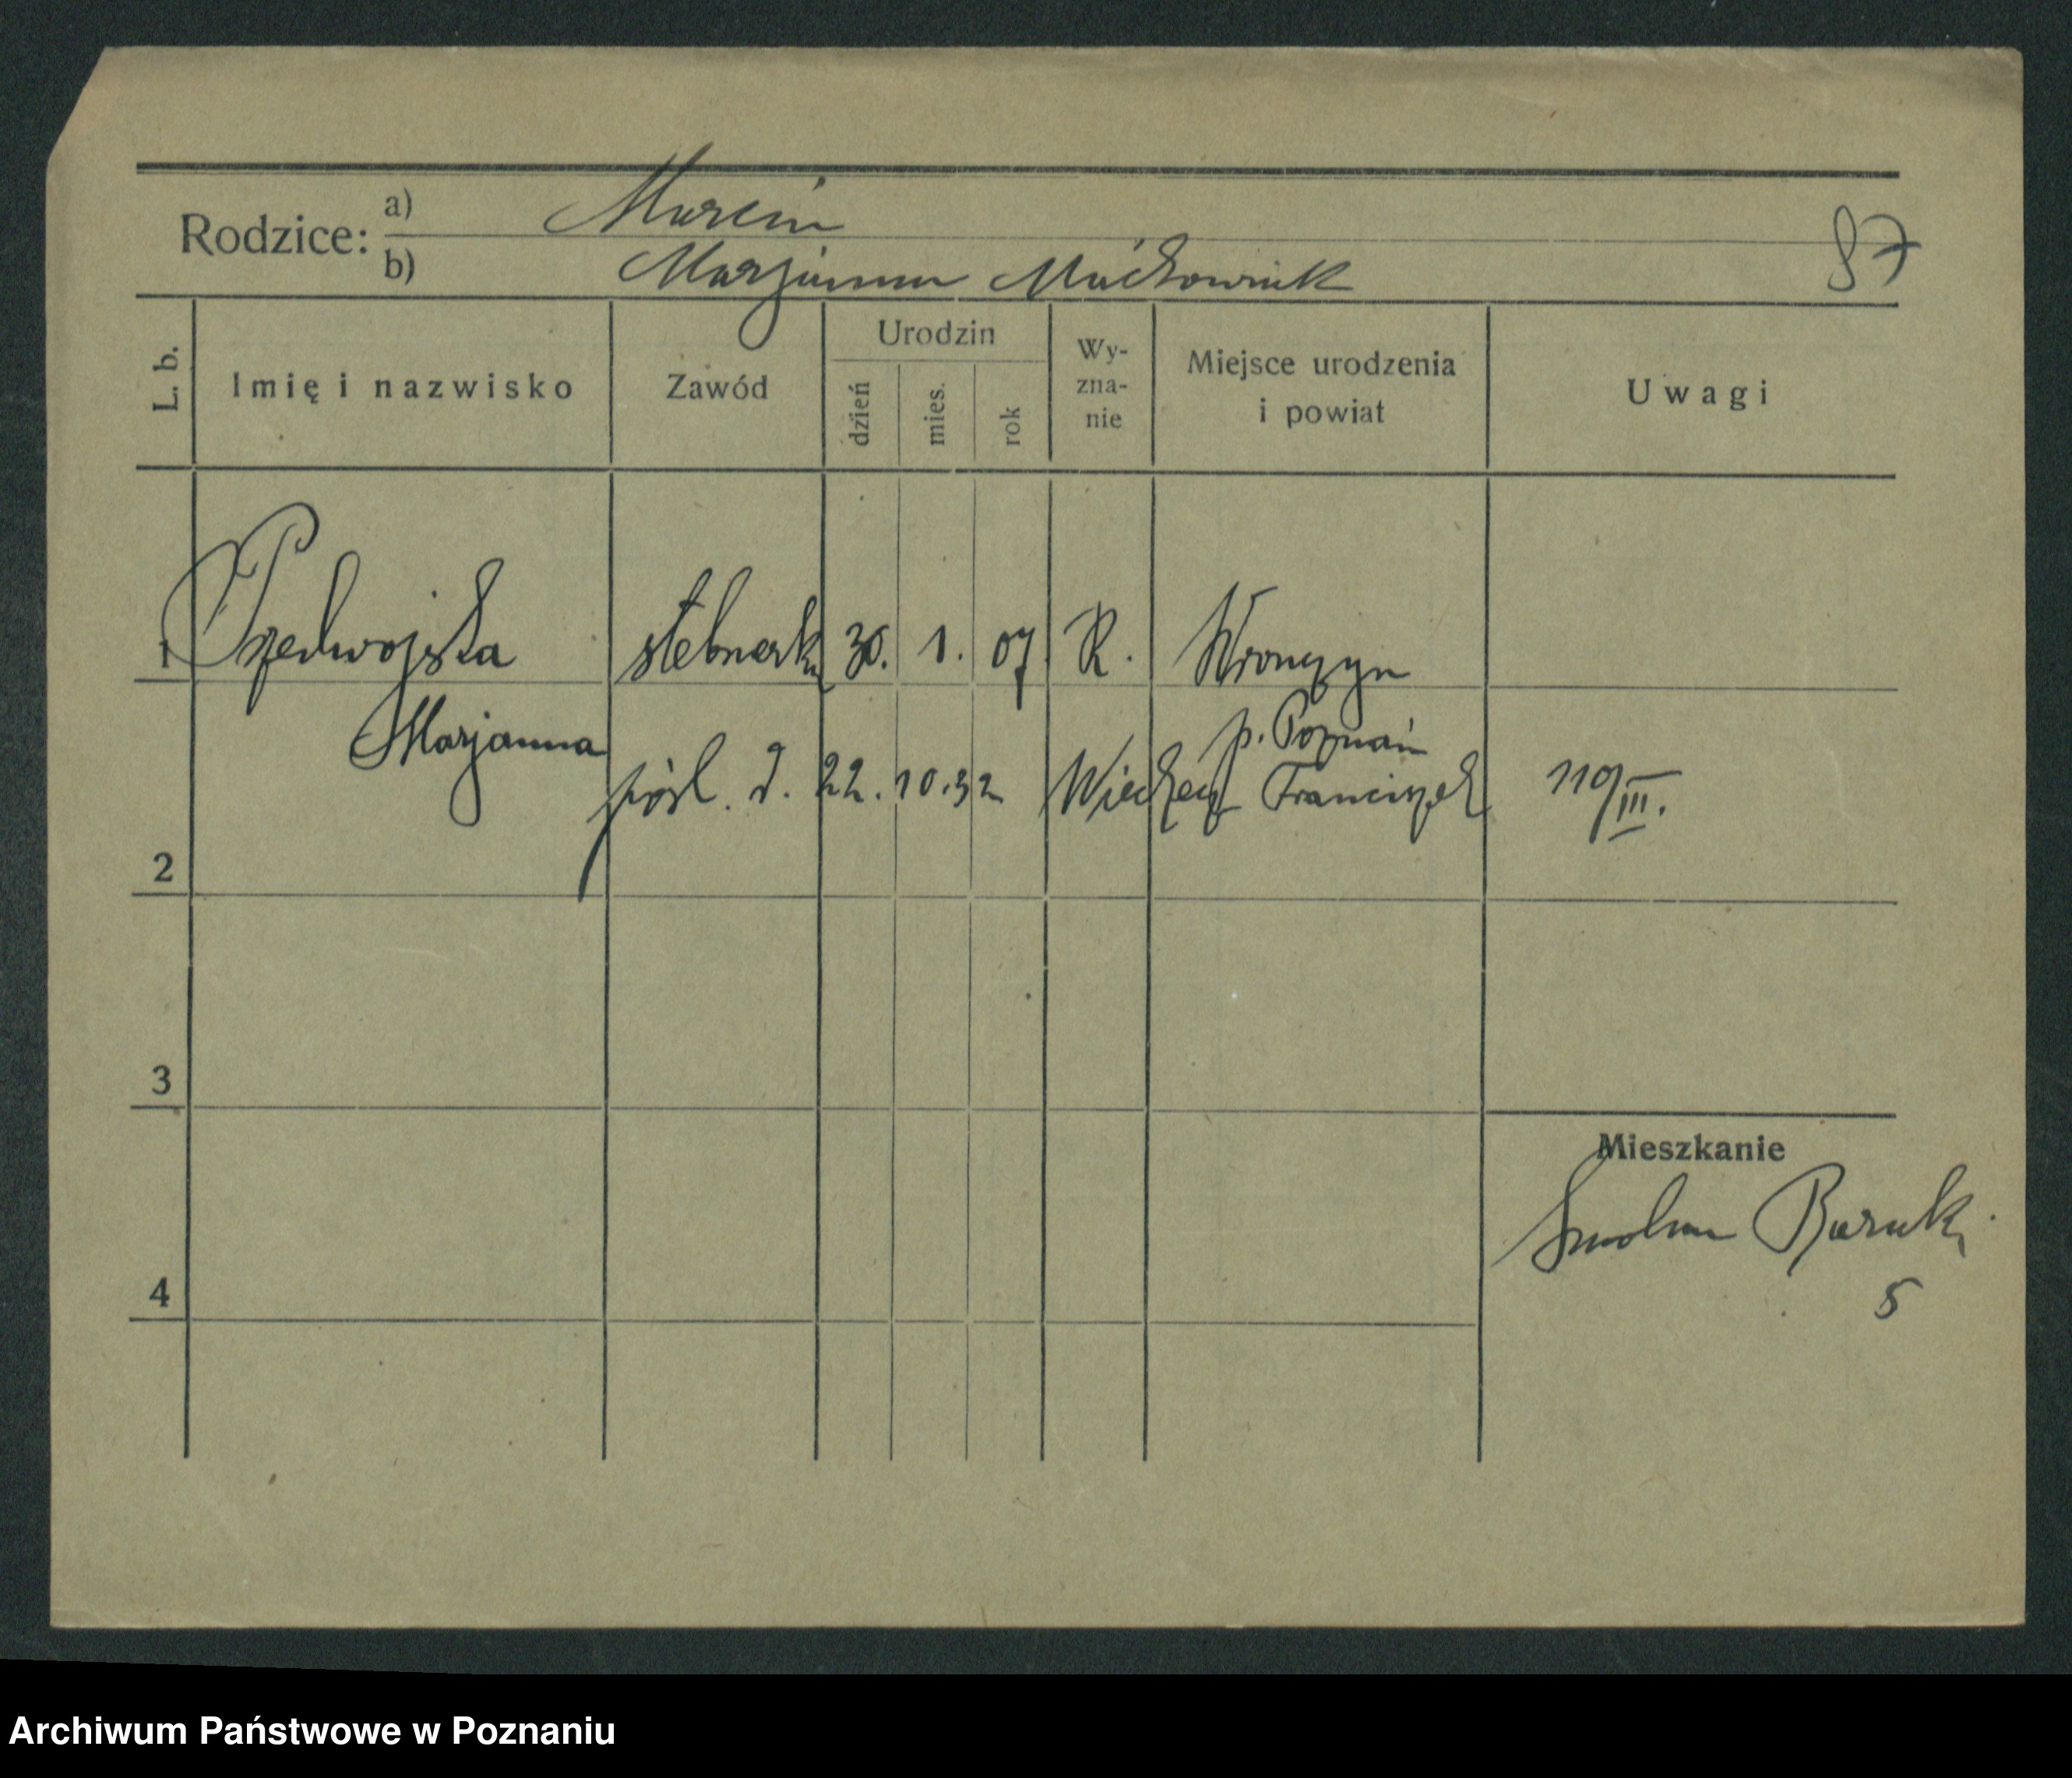 Rodzice: a) Marcin
b) Marjanna Maćkowiak
87
L. b.
Imię i nazwisko
Zawód
Urodzin
dzień
mies.
rok
Wy-
zna-
nie
Miejsce urodzenia
i powiat
Uwagi
1 Przedwojska 30. 1. 07 R. Wronczyn
Marjanna p. Poznań
pośl. d. 22.10.32 Franciszek 110/III.
2
3
4
Mieszkanie
5
Archiwum Państwowe w Poznaniu